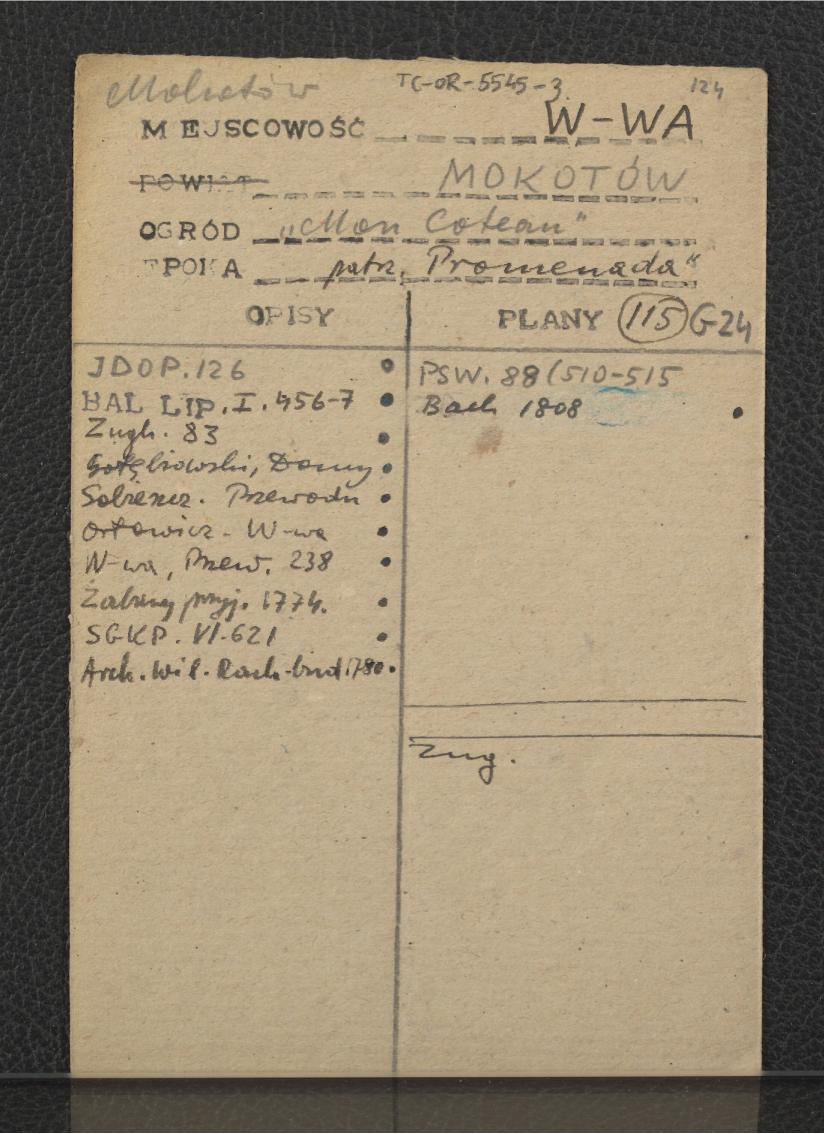 Mokotów TG-OR-5545-3 124
MIEJSCOWOŚĆ W-WA
POWIAT MOKOTÓW
OGRÓD „Mon Coteau"
EPOKA patrz „Promenada"
OPISY PLANY 115 G24
JDOP. 126
BAL LIP. I. 456-7
Zugb. 83
Gołębiowski, Domy
Sobieszcz. Przewodn
Orłowicz - W-wa
W-wa, Przew. 238
Zabawy przyj. 1774.
SGKP. VI-621
Arch. Wil. Rach-bud 1780
PSW. 88 (510-515
Bach 1808
Zug.